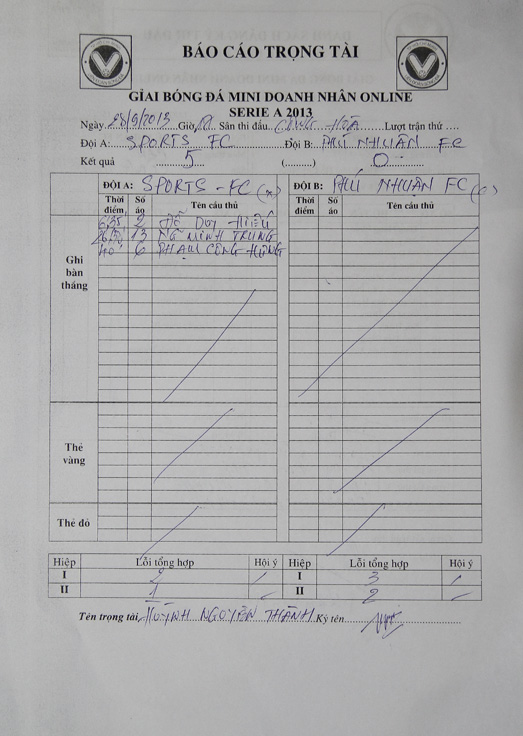 BÁO CÁO TRỌNG TÀI
GIẢI BÓNG ĐÁ MINI DOANH NHÂN ONLINE
SERIE A 2013
Ngày 28/9/2013 Giờ Sân thi đấu. CỘNG HÒA Lượt trận thứ ....
Đội A: SPORTS FC Đội B: PHÚ NHUẬN FC
Kết quả 5 (..........) 0
ĐỘI A: SPORTS - FC ĐỘI B: PHÚ NHUẬN FC
Thời điểm Số áo Tên cầu thủ Thời điểm Số áo Tên cầu thủ
Ghi bàn thắng
2 ĐỖ DUY HIẾU
13 NG MINH TRUNG
6 PHẠM CÔNG HÙNG
Thẻ vàng
Thẻ đỏ
Hiệp Lỗi tổng hợp Hội ý Hiệp Lỗi tổng hợp Hội ý
I 2 I 3
II 1 II 2
Tên trọng tài HUỲNH NGUYÊN THÀNH Ký tên